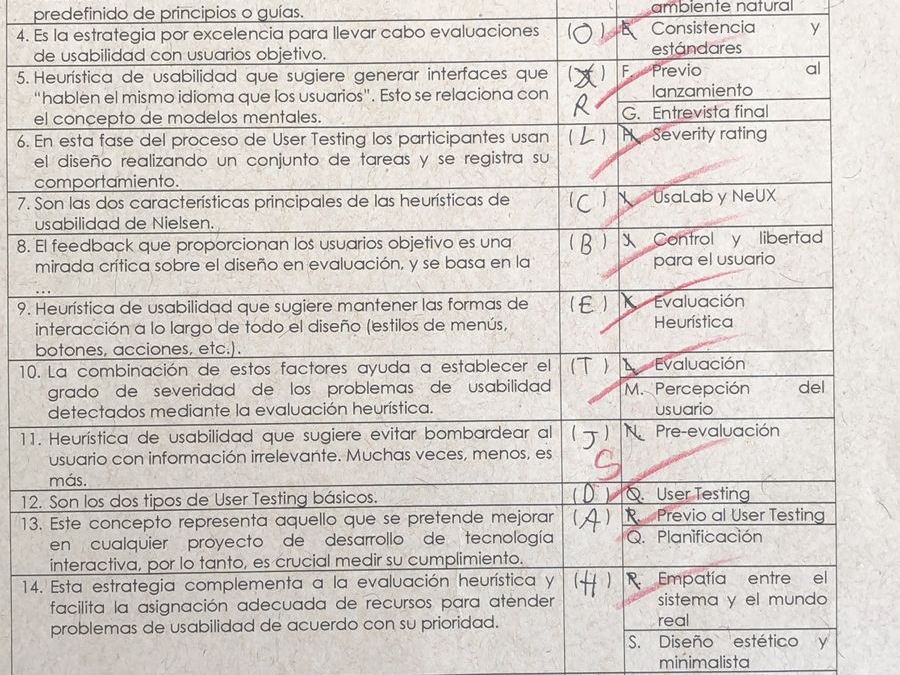 predefinido de principios o guías.
ambiente natural
4. Es la estrategia por excelencia para llevar cabo evaluaciones
de usabilidad con usuarios objetivo.
(O)
E. Consistencia y
estándares
5. Heurística de usabilidad que sugiere generar interfaces que
"hablen el mismo idioma que los usuarios". Esto se relaciona con
el concepto de modelos mentales.
R
F. Previo al
lanzamiento
G. Entrevista final
6. En esta fase del proceso de User Testing los participantes usan
el diseño realizando un conjunto de tareas y se registra su
comportamiento.
(L)
H. Severity rating
7. Son las dos características principales de las heurísticas de
usabilidad de Nielsen.
(C)
UsaLab y NeUX
8. El feedback que proporcionan los usuarios objetivo es una
mirada crítica sobre el diseño en evaluación, y se basa en la
...
(B)
Control y libertad
para el usuario
9. Heurística de usabilidad que sugiere mantener las formas de
interacción a lo largo de todo el diseño (estilos de menús,
botones, acciones, etc.).
(E)
K. Evaluación
Heurística
10. La combinación de estos factores ayuda a establecer el
grado de severidad de los problemas de usabilidad
detectados mediante la evaluación heurística.
(T)
L. Evaluación
M. Percepción del
usuario
11. Heurística de usabilidad que sugiere evitar bombardear al
usuario con información irrelevante. Muchas veces, menos, es
más.
(J)
S
N. Pre-evaluación
12. Son los dos tipos de User Testing básicos.
(D)
User Testing
13. Este concepto representa aquello que se pretende mejorar
en cualquier proyecto de desarrollo de tecnología
interactiva, por lo tanto, es crucial medir su cumplimiento.
(A)
Previo al User Testing
Q. Planificación
14. Esta estrategia complementa a la evaluación heurística y
facilita la asignación adecuada de recursos para atender
problemas de usabilidad de acuerdo con su prioridad.
(H)
R. Empatía entre el
sistema y el mundo
real
S. Diseño estético y
minimalista